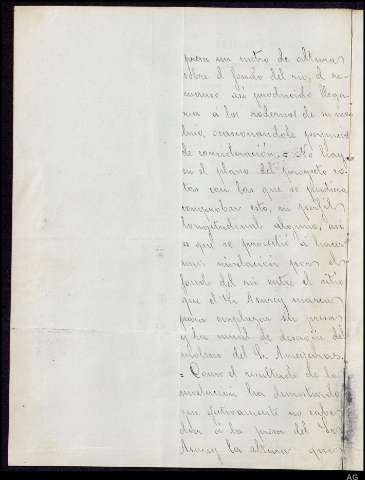 presa un metro de altura
sobre el fondo del rio, el re-
manso así producido llega-
ria a los rodernos de su mo-
lino, ocasionandole perjuicios
de consideración. = No hay
en el plano del proyecto co-
tas con las que se pudiera
comprobar esto, ni perfil
longitudinal alguno, así
es que se procedió á hacer
una nivelación por el
fondo del rio entre el sitio
que el Sr. marca
para emplazar su presa
y la unial de desagüe del
molino del Sr.
= Como el resultado de la
nivelación ha demostrado
que efectivamente no cabe
dar á la presa del Sr.
la altura que
AG